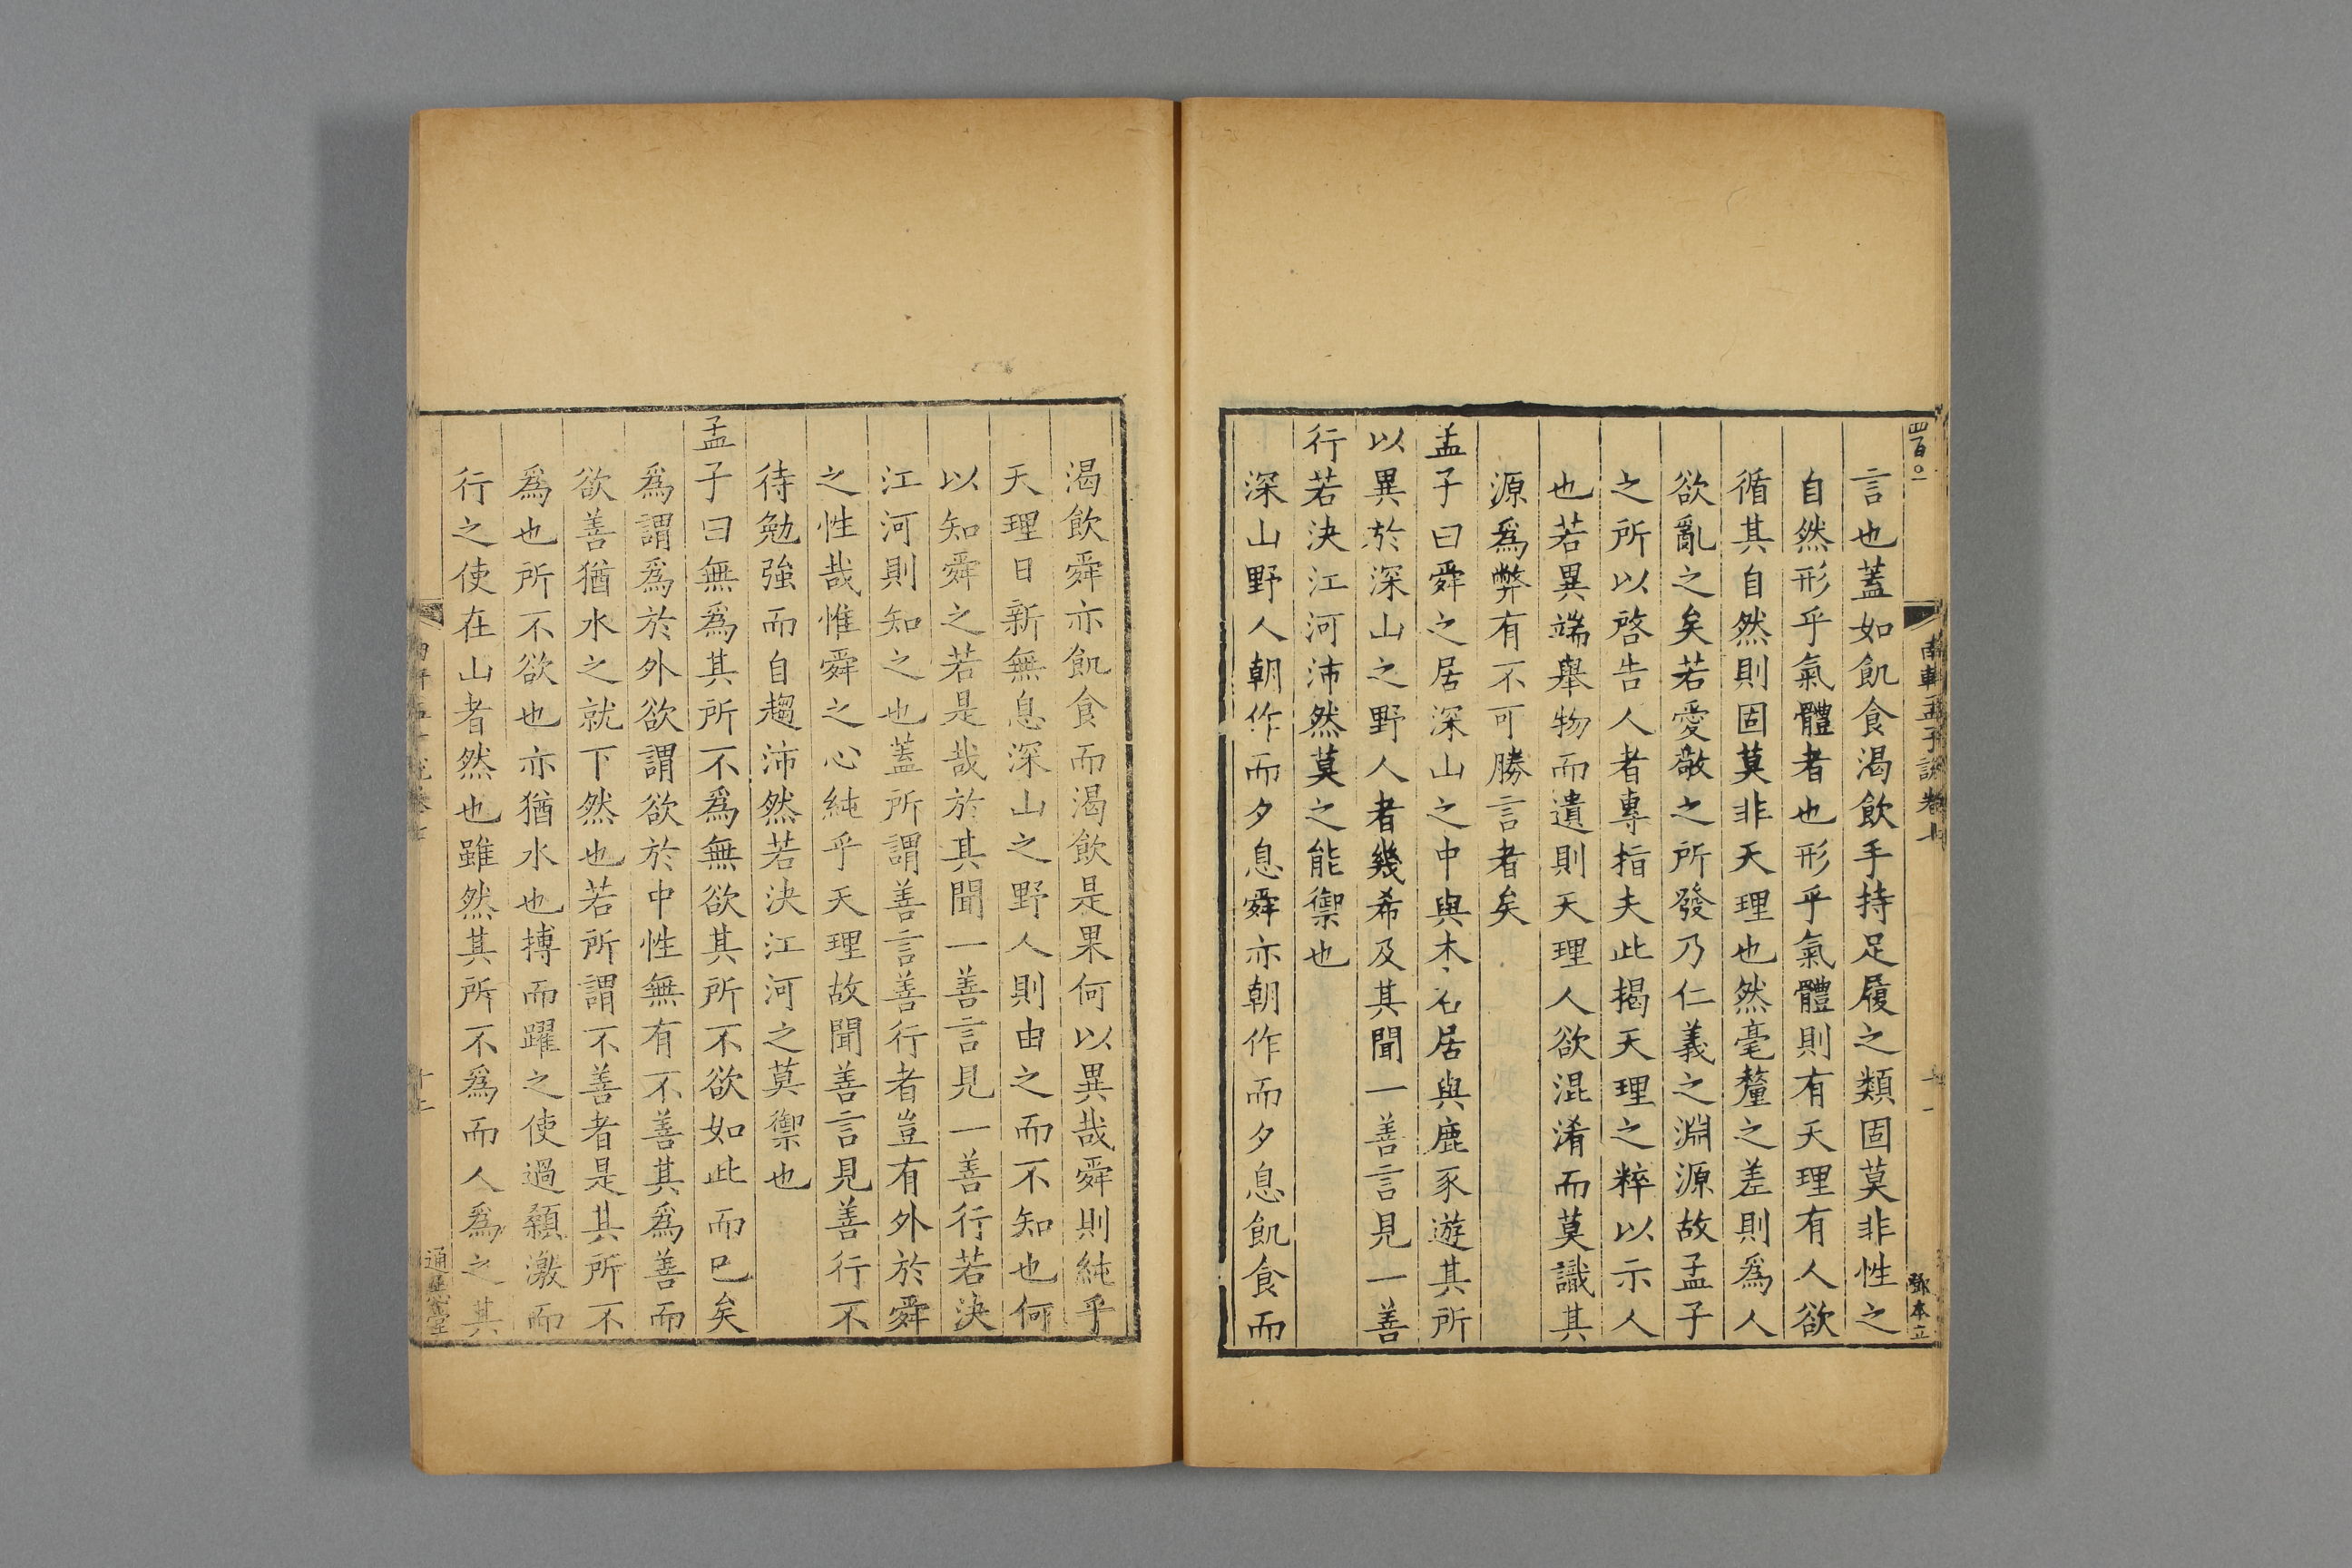 四百〇一
南軒孟子說卷七
鄧本立
言也蓋如飢食渴飲手持足履之類固莫非性之
自然形乎氣體者也形乎氣體則有天理有人欲
循其自然則固莫非天理也然毫釐之差則爲人
欲亂之矣若愛敬之所發乃仁義之淵源故孟子
之所以啓告人者專指夫此揭天理之粹以示人
也若異端舉物而遺則天理人欲混淆而莫識其
源爲弊有不可勝言者矣
孟子曰舜之居深山之中與木石居與鹿豕遊其所
以異於深山之野人者幾希及其聞一善言見一善
行若決江河沛然莫之能禦也
深山野人朝作而夕息舜亦朝作而夕息飢食而
渴飲舜亦飢食而渴飲是果何以異哉舜則純乎
天理日新無息深山之野人則由之而不知也何
以知舜之若是哉於其聞一善言見一善行若決
江河則知之也蓋所謂善言善行者豈有外於舜
之性哉惟舜之心純乎天理故聞善言見善行不
待勉強而自趨沛然若決江河之莫禦也
孟子曰無爲其所不爲無欲其所不欲如此而已矣
爲謂爲於外欲謂欲於中性無有不善其爲善而
欲善猶水之就下然也若所謂不善者是其所不
爲也所不欲也亦猶水也搏而躍之使過顙激而
行之使在山者然也雖然其所不爲而人爲之其
通志堂